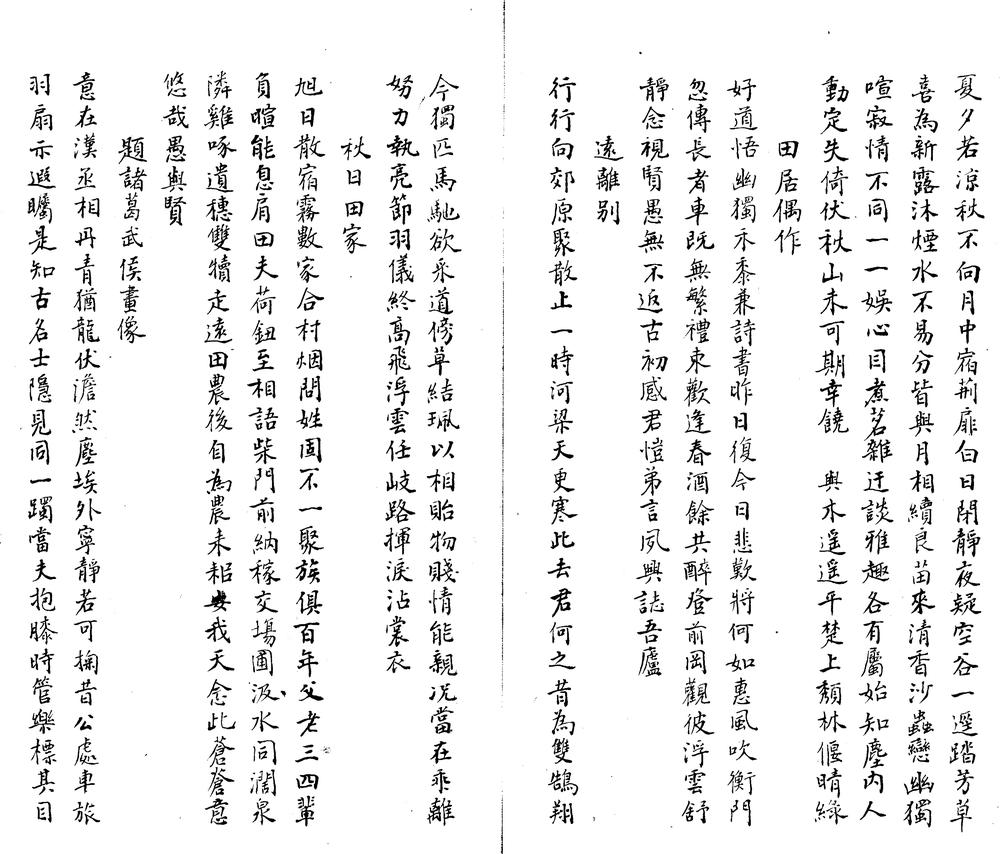 夏夕若涼秋不向月中宿荆扉白日閉靜夜疑空谷一逕踏芳草
喜為新露沐煙水不易分皆與月相續良苗來清香沙蟲戀幽獨
喧寂情不同一一娛心目煮茗雜迂談雅趣各有屬始知塵內人
動定失倚伏秋山未可期幸饒 與木遥遥平楚上頹林偃晴綠
田居偶作
好道悟幽獨禾黍兼詩書昨日復今日悲歎將何如惠風吹衡門
忽傳長者車既無繁禮束歡逢春酒餘共醉登前岡觀彼浮雲舒
靜念視賢愚無不返古初感君愷弟言夙興誌吾廬
遠離別
行行向郊原聚散上一時河梁天更寒此去君何之昔為雙鵠翔
今獨匹馬馳欲采道傍草結珮以相貽物賤情能親况當在乖離
努力執亮節羽儀終高飛浮雲任岐路揮淚沾裳衣
秋日田家
旭日散宿霧數家合村烟問姓固不一聚族俱百年父老三四輩
負暄能息肩田夫荷鈕至相語柴門前納稼交場圃汲水同澗泉
隣雞啄遺穗雙犢走遠田農後自為農耒耜我天念此蒼蒼意
悠哉愚與賢
題諸葛武侯畫像
意在漢丞相丹青猶龍伏澹然塵埃外寧靜若可掬昔公處車旅
羽扇示遐矚是知古名士隱見同一躅當夫抱膝時管樂標其目